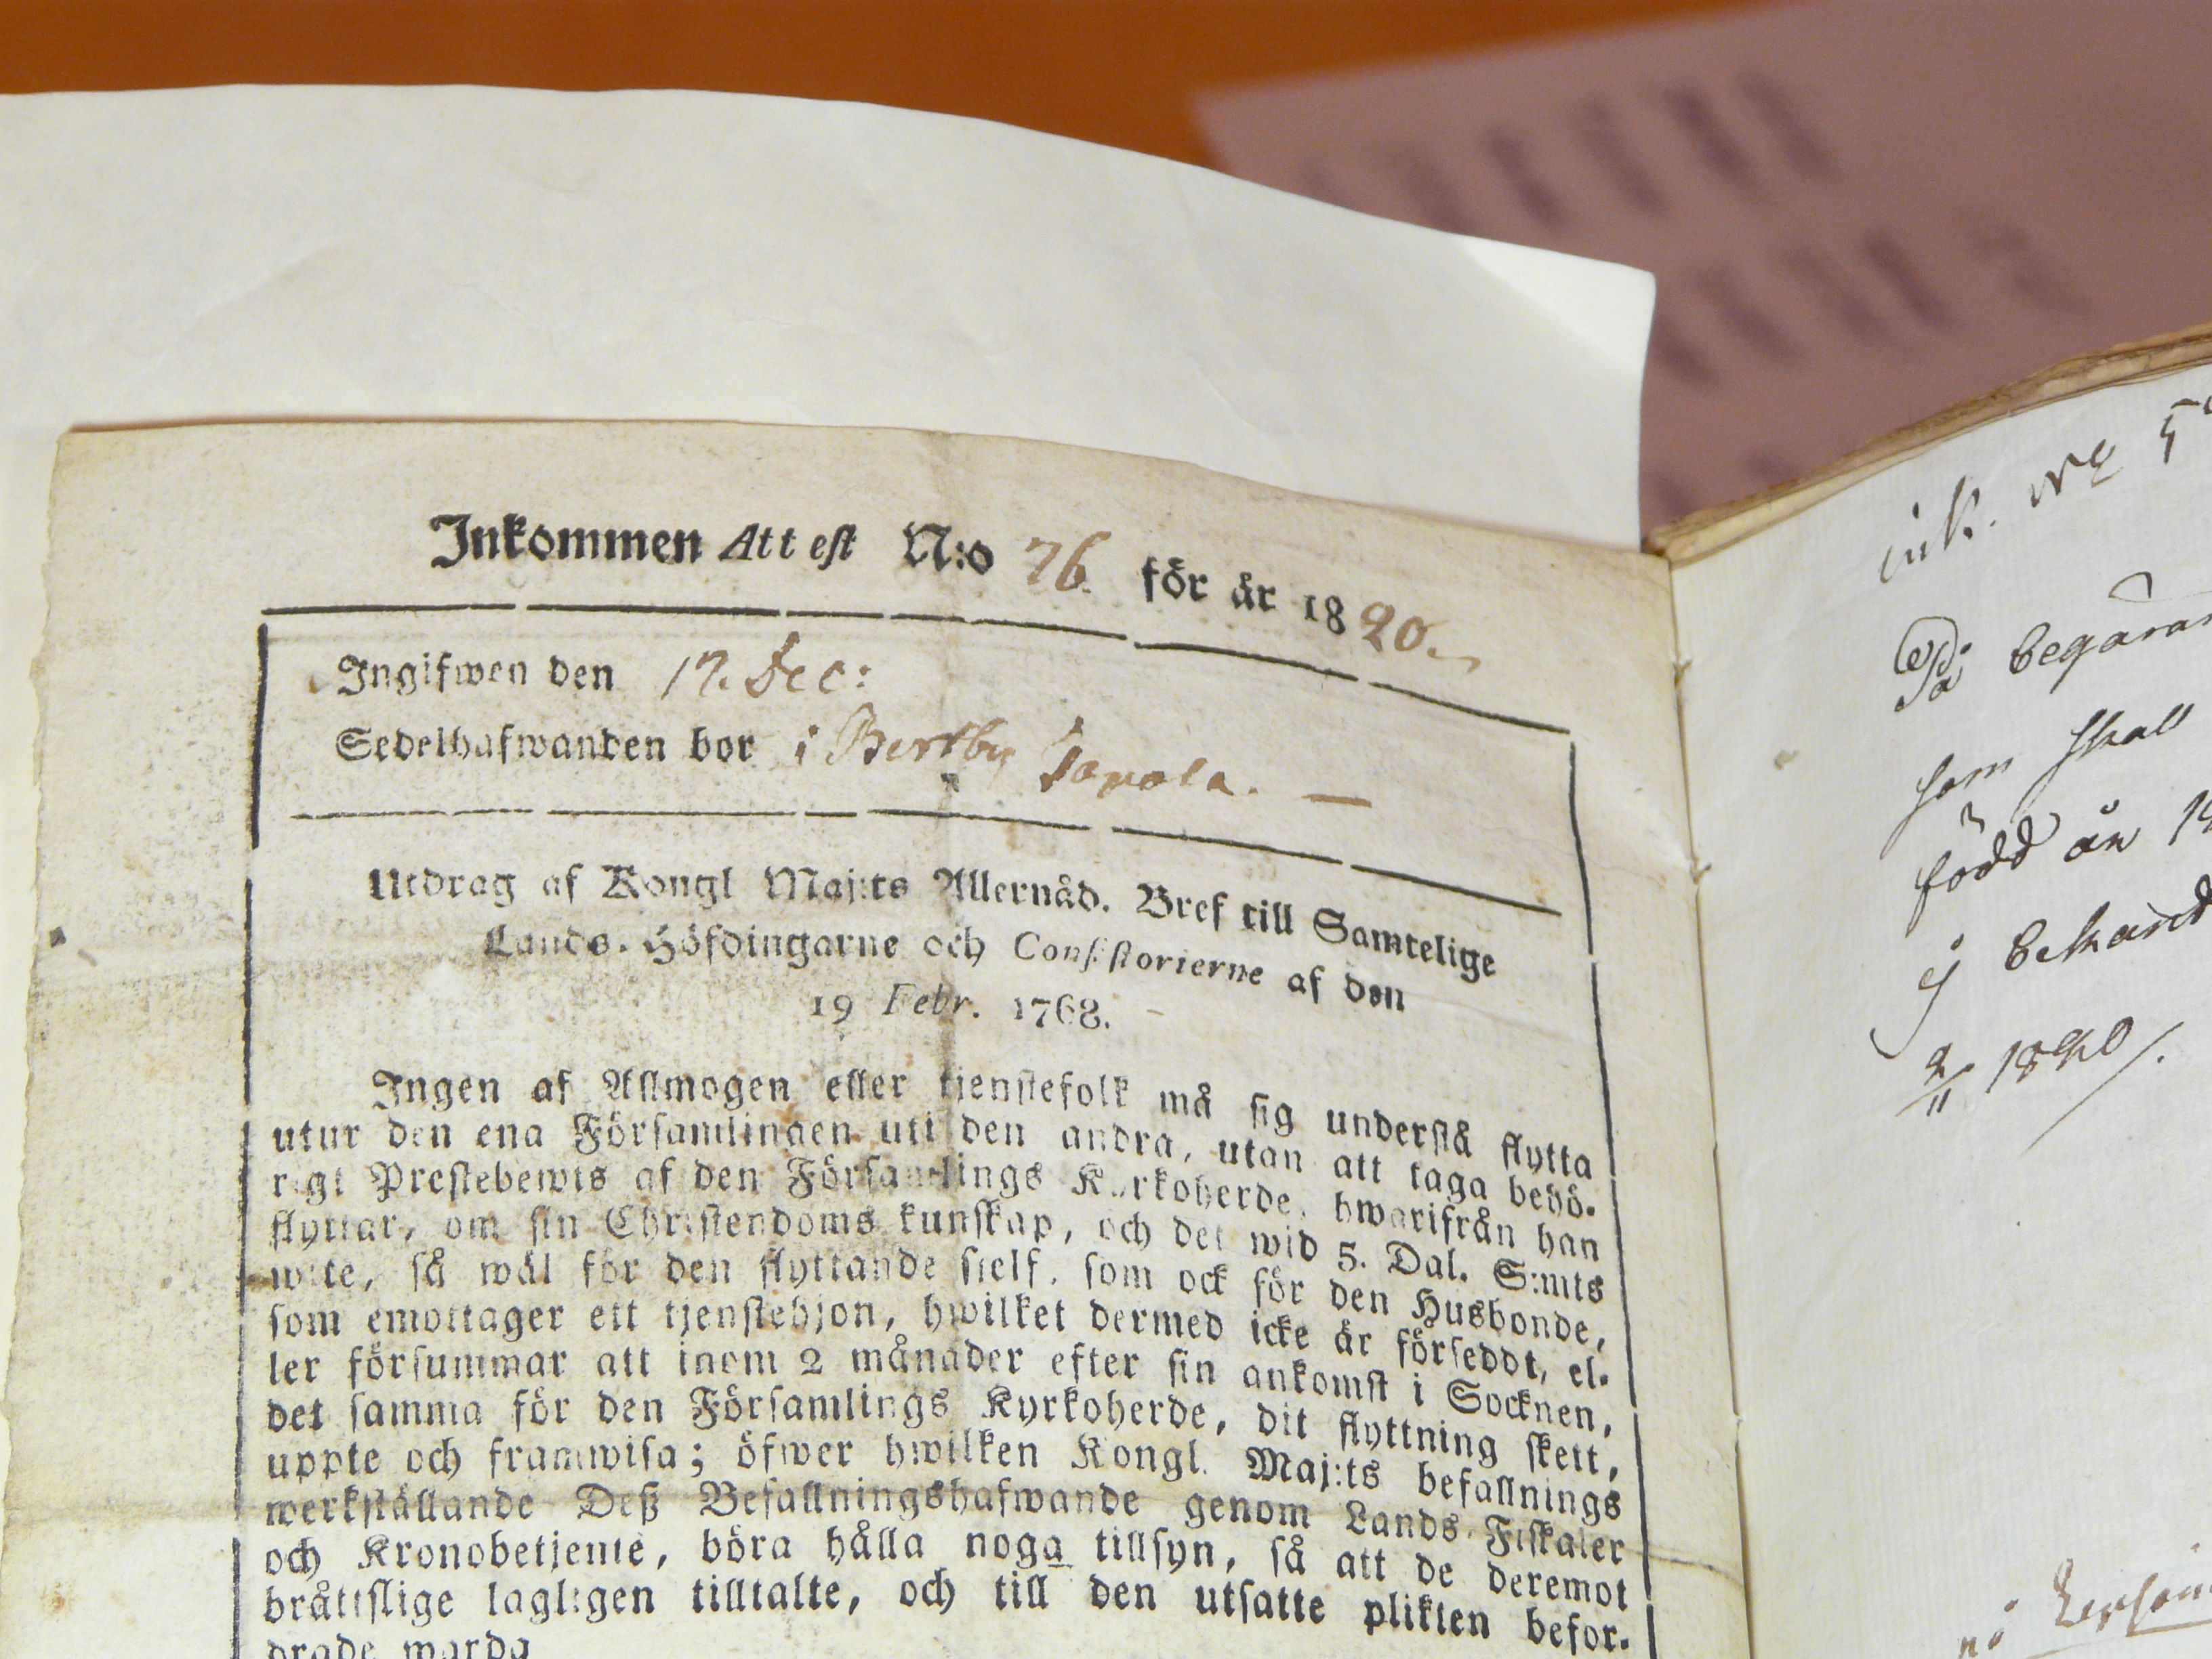 Inkommen Attest N:o 76. för år 1820.
Ingifwen den 17. Dec:
Sedelhafwanden bor i Bertby Tavola. —
Utdrag af Kongl Maj:ts Allernåd. Bref till Samtelige
Lands-Höfdingarne och Consistorierne af den
19 Febr. 1768.
Ingen af Allmogen eller tjenstefolk må sig understå flytta
utur den ena Församlingen uti den andra, utan att taga behö-
rigt Prestebewis af den Församlings Kyrkoherde, hwarifrån han
flyttar, om sin Christendoms kunskap, och det wid 5. Dal. S:mts
wite, så wäl för den flyttande sielf, som ock för den Husbonde,
som emottager ett tjenstehjon, hwilket dermed icke är förseddt, el-
ler försummar att inom 2 månader efter sin ankomst i Socknen,
det samma för den Församlings Kyrkoherde, dit flyttning skett,
uppte och framwisa; öfwer hwilken Kongl. Maj:ts befallnings
werkställande Deß Befallningshafwande genom Lands-Fiskaler
och Kronobetjente, böra hålla noga tillsyn, så att de deremot
bråttslige lagligen tilltalte, och till den utsatte plikten befor-
drade warda
ink. No 5
På begäran
som skall
född år
ej bekand
2/11 1820/.